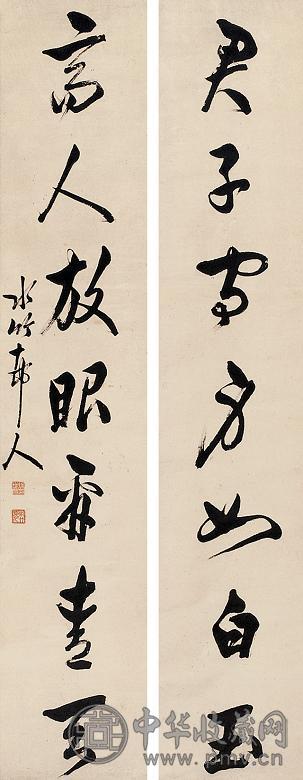 君子守身如白玉
高人放眼青天
水竹邨人
中华收藏网
www.pmv.cn